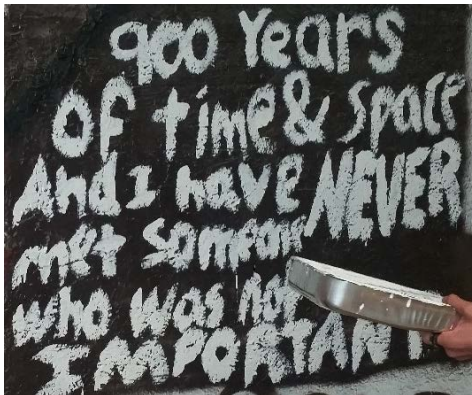 900 Years
Of time & Space
And I have NEVER
met someone
who was not
IMPORTANT